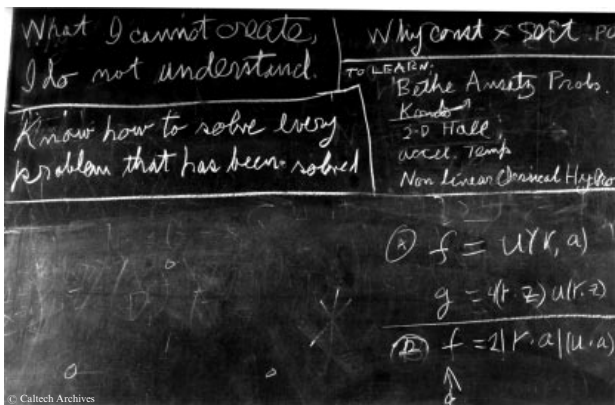 What I cannot create,
I do not understand.
Know how to solve every
problem that has been solved
Why const × sort . PO
TO LEARN:
Bethe Ansatz Probs.
Kondo
2-D Hall
accel. Temp
Non linear Classical Hydro
f = u(r, a)
g = 4(r·z) u(r·z)
f = 2|r·a|(u·a)
© Caltech Archives